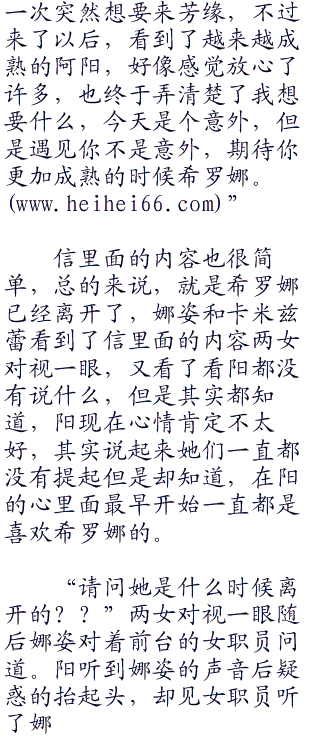 一次突然想要来芳缘，不过
来了以后，看到了越来越成
熟的阿阳，好像感觉放心了
许多，也终于弄清楚了我想
要什么，今天是个意外，但
是遇见你不是意外，期待你
更加成熟的时候希罗娜。
(www.heihei66.com)”
信里面的内容也很简
单，总的来说，就是希罗娜
已经离开了，娜姿和卡米兹
蕾看到了信里面的内容两女
对视一眼，又看了看阳都没
有说什么，但是其实都知
道，阳现在心情肯定不太
好，其实说起来她们一直都
没有提起但是却知道，在阳
的心里面最早开始一直都是
喜欢希罗娜的。
“请问她是什么时候离
开的？？”两女对视一眼随
后娜姿对着前台的女职员问
道。阳听到娜姿的声音后疑
惑的抬起头，却见女职员听
了娜